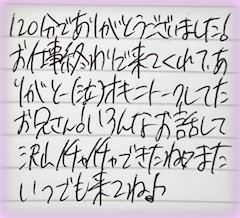 120分でありがとうございました!
お仕事終わりで来てくれて、あ
りがと(は)オキニトークしてた
お兄さん!いろんなお話して
沢山イチャイチャできたねまた
いつでも来てね♪